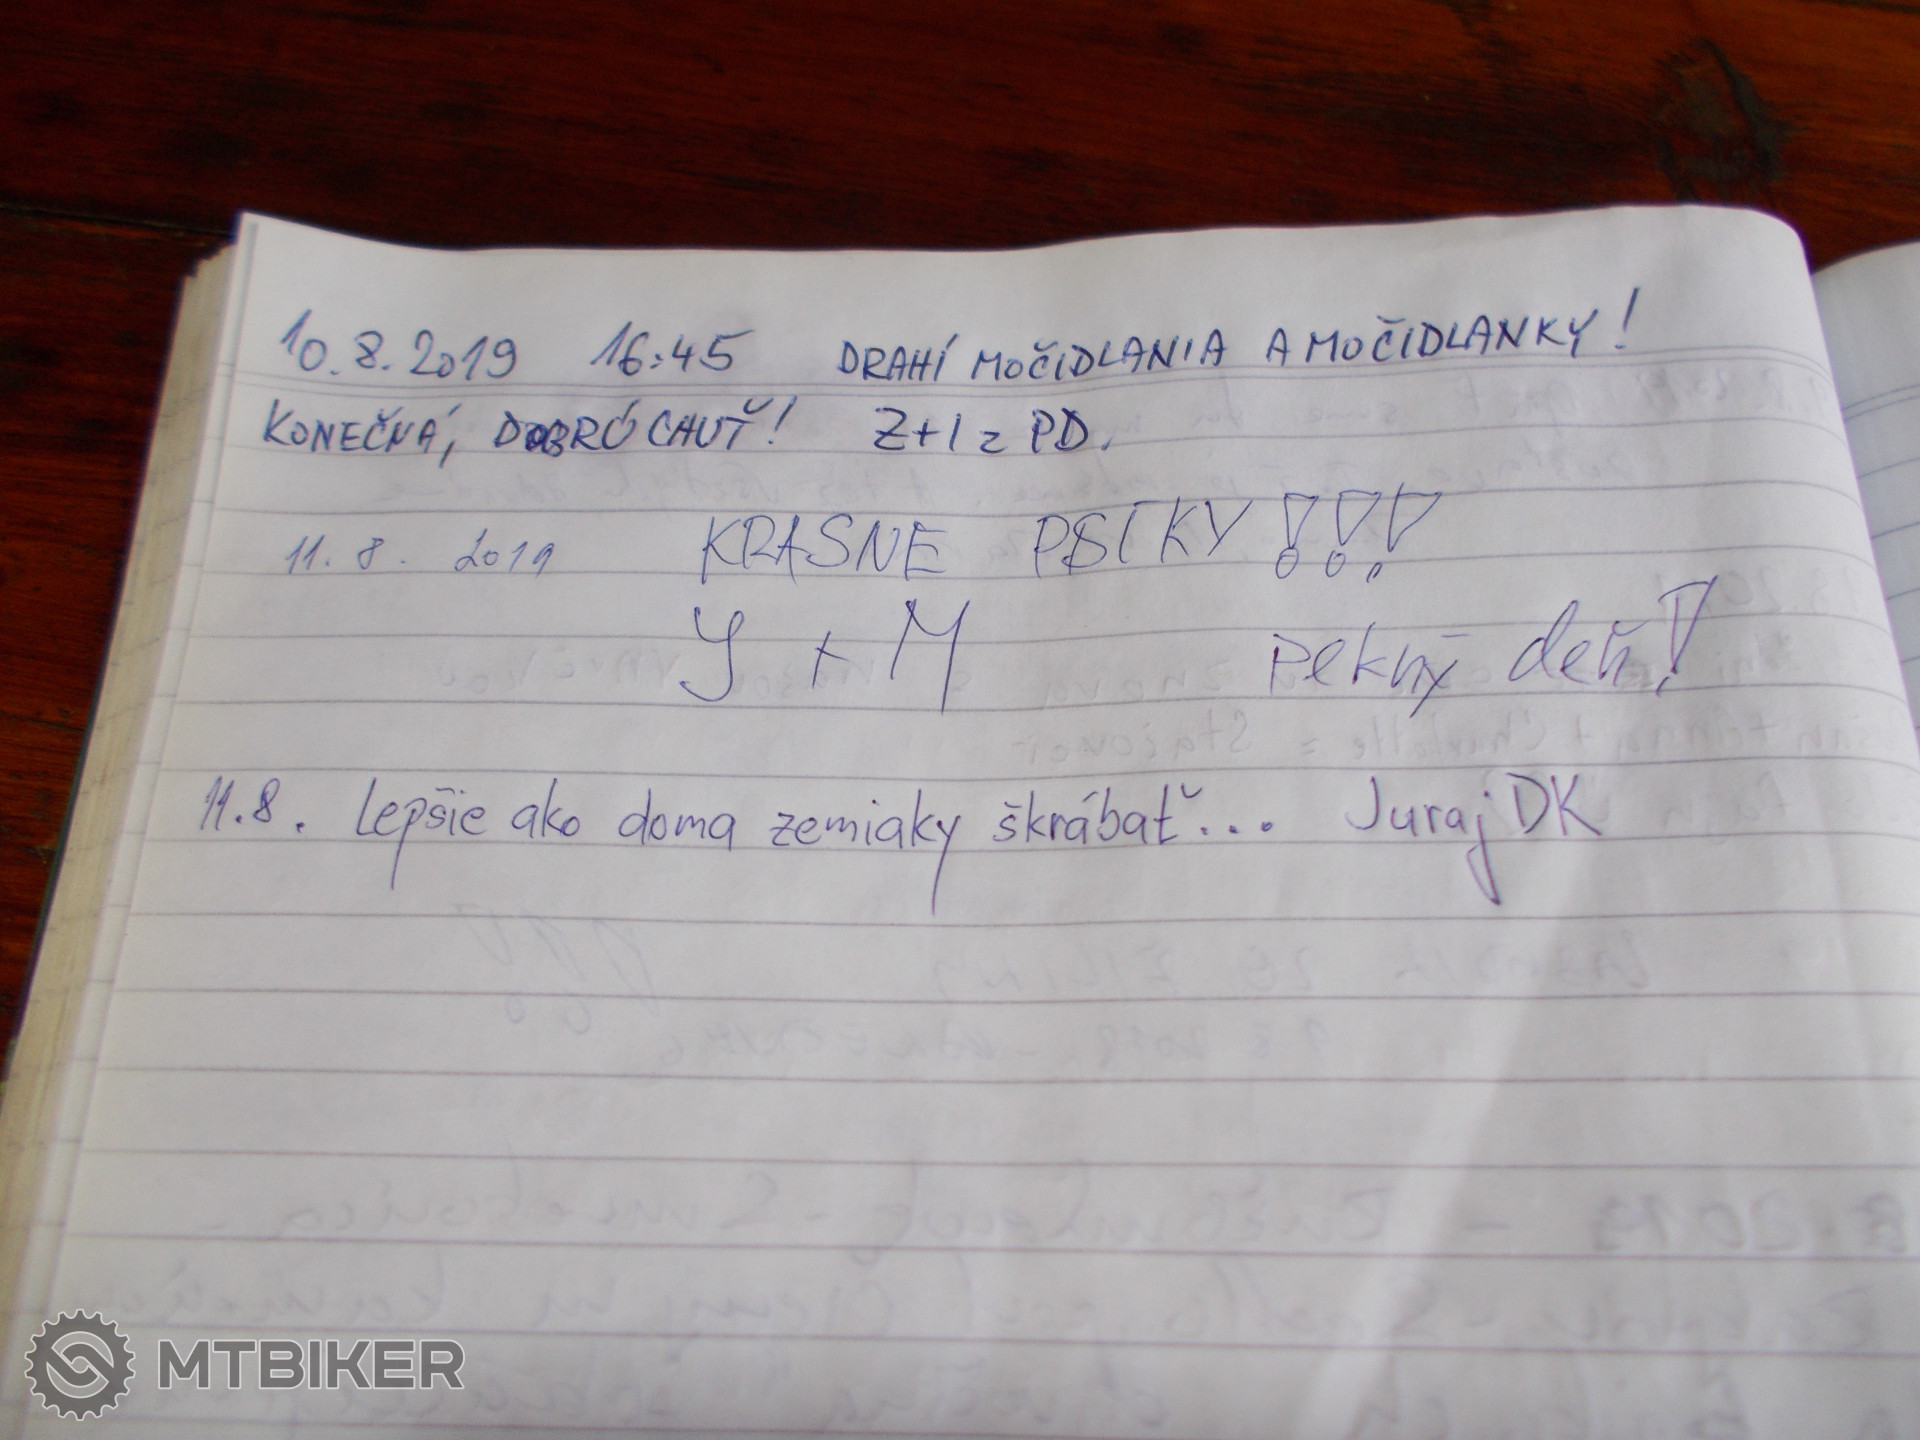 10.8.2019 16:45 DRAHÍ MOČIDLANIA A MOČIDLANKY!
KONEČNÁ, DOBRÚ CHUŤ! Z+I z PD.
11.8. 2019 KRASNE PSÍKY!!!
Y + M pekný deň!
11.8. Lepšie ako doma zemiaky škrábať... Juraj DK
MTBIKER